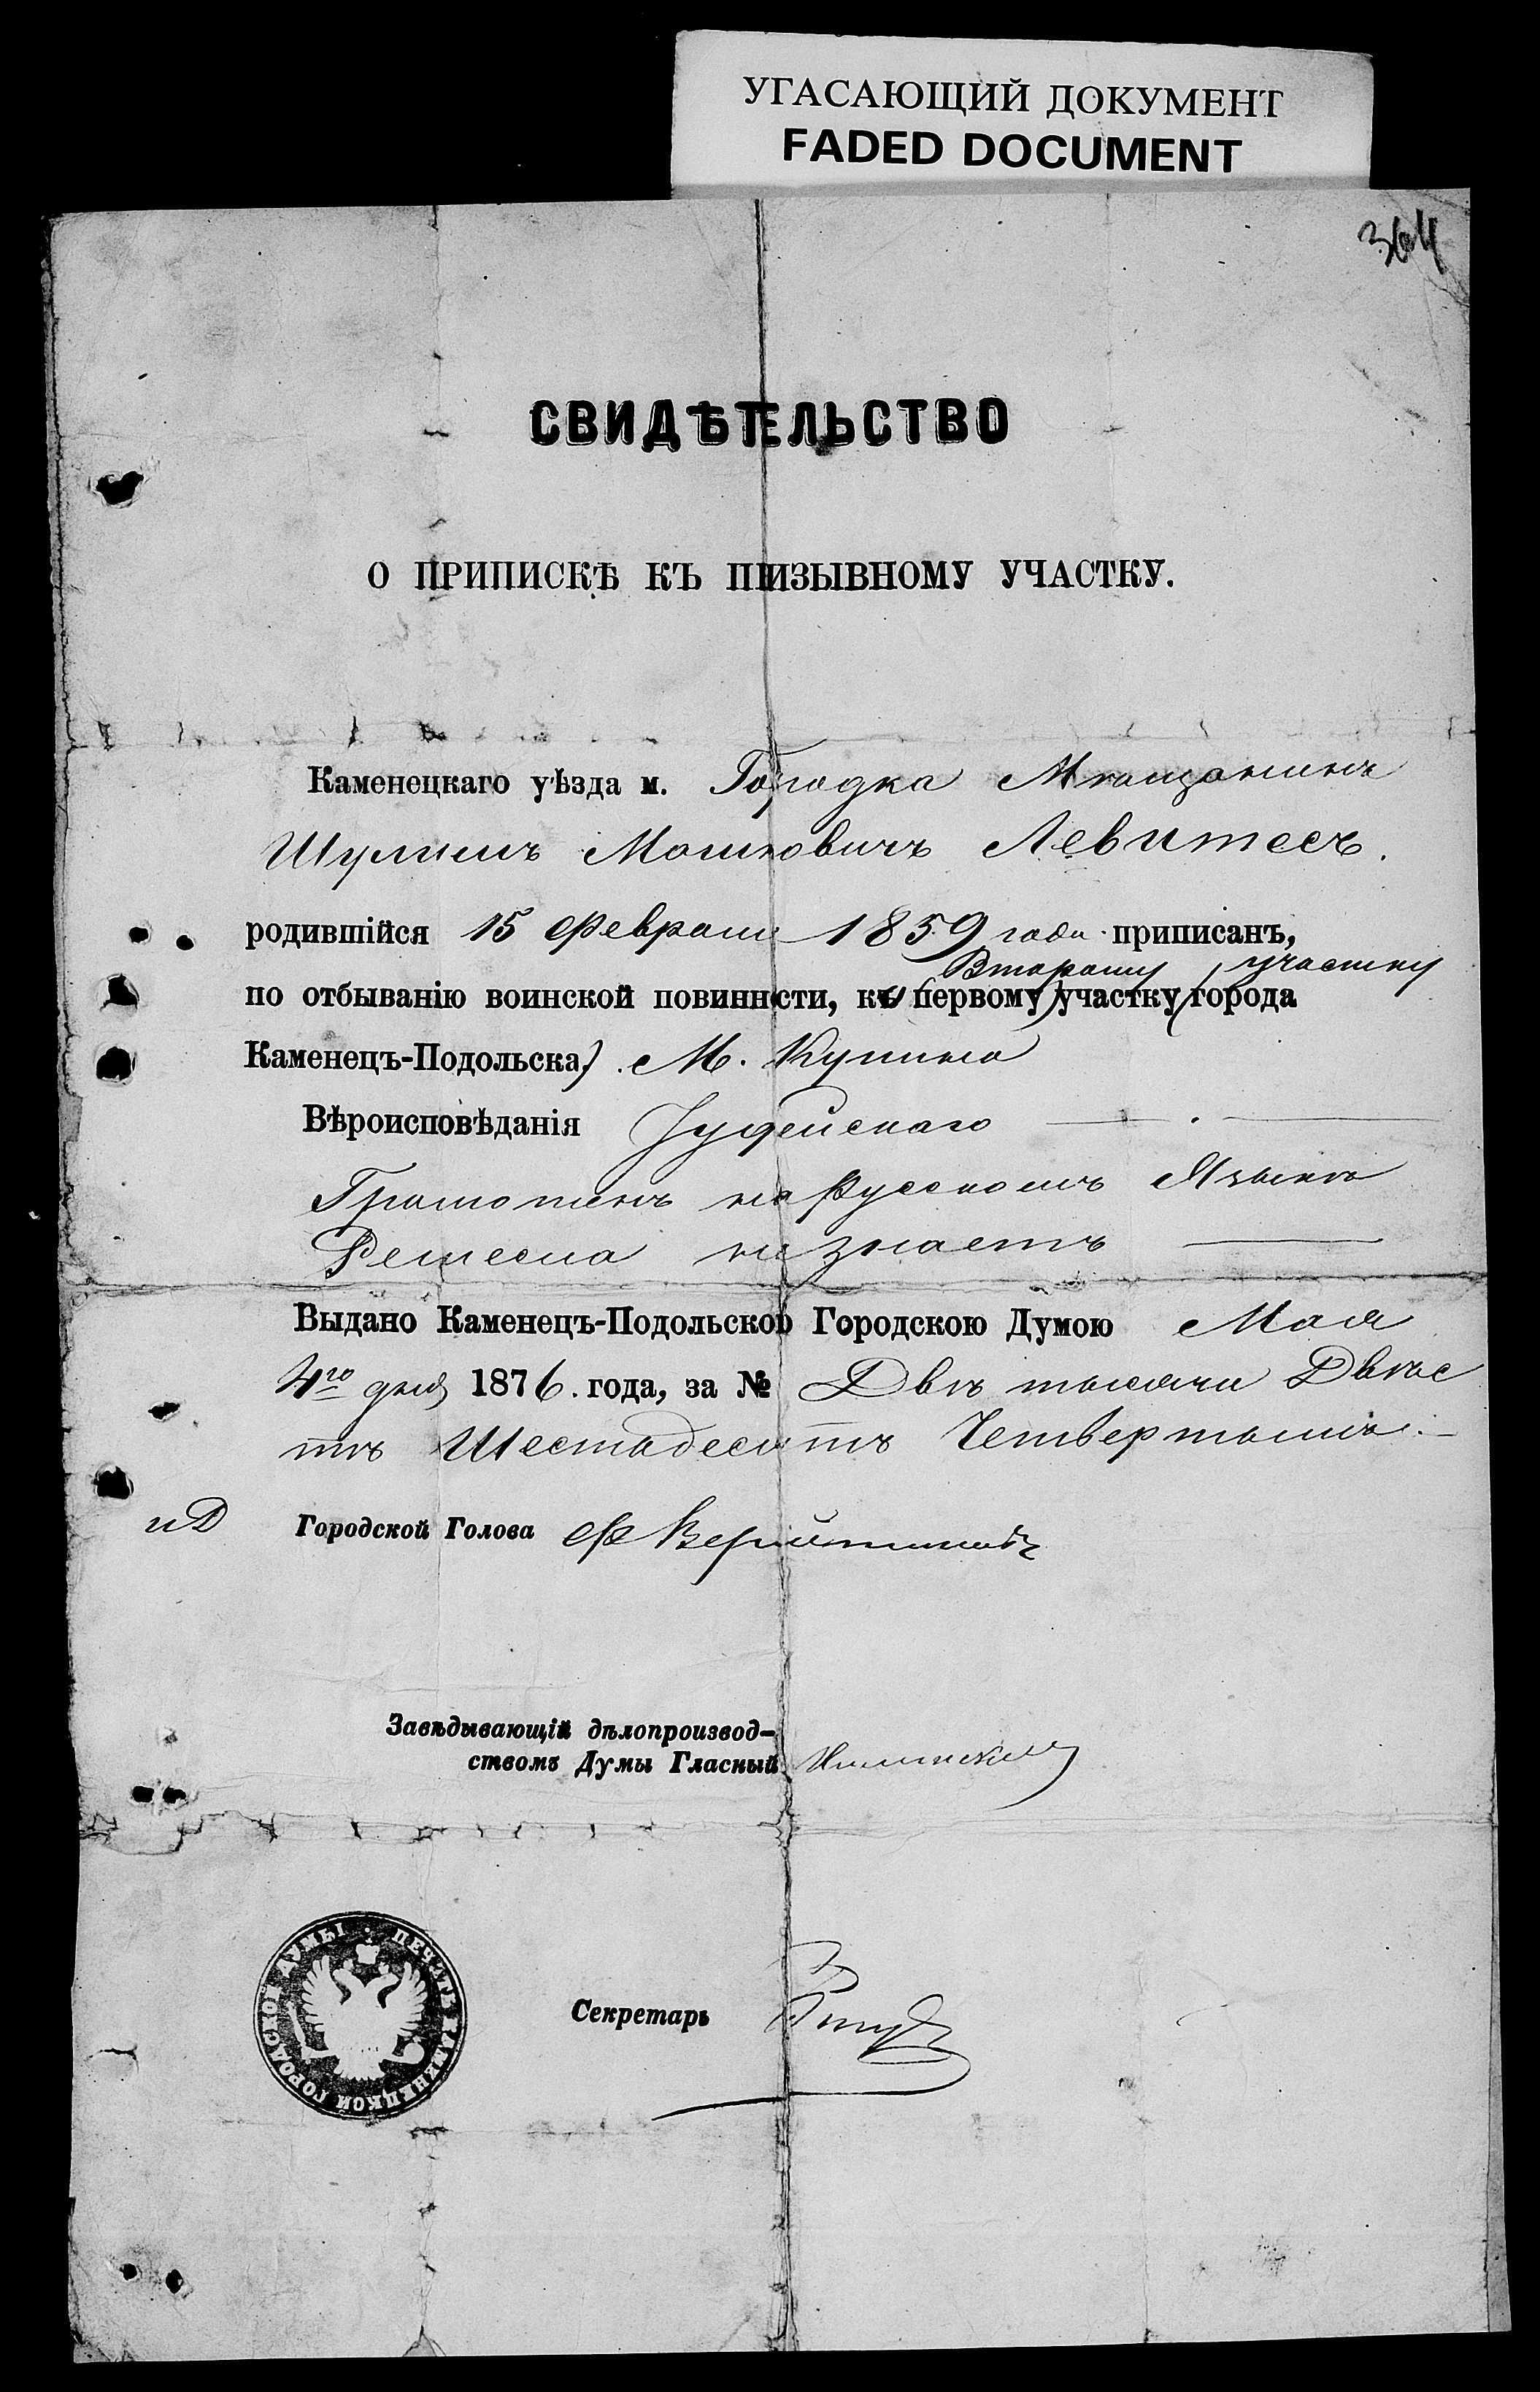 УГАСАЮЩИЙ ДОКУМЕНТ
FADED DOCUMENT
364
СВИДѢТЕЛЬСТВО
О ПРИПИСКѢ КЪ ПРИЗЫВНОМУ УЧАСТКУ.
Каменецкаго уѣзда м. Городка Мѣщанинъ
Шулимъ Мошковичъ Левитесъ.
родившійся 15 Февраля 1859 года приписанъ,
Второму участку
по отбыванію воинской повинности, къ (первому) участку (города
Каменецъ-Подольска). М. Купина
Вѣроисповѣданія Іудейскаго
Грамотенъ на Русскомъ Языкѣ
Ремесла не знаетъ
Выдано Каменецъ-Подольской Городскою Думою Мая
4го дня 1876. года, за № Двѣ тысячи Двѣс
тѣ Шестьдесятъ Четвертымъ.
иД Городской Голова Ф
Завѣдывающій дѣлопроизвод-
ствомъ Думы Гласный
ПЕЧАТЬ КАМЕНЕЦКОЙ ГОРОДСКОЙ ДУМЫ
Секретарь